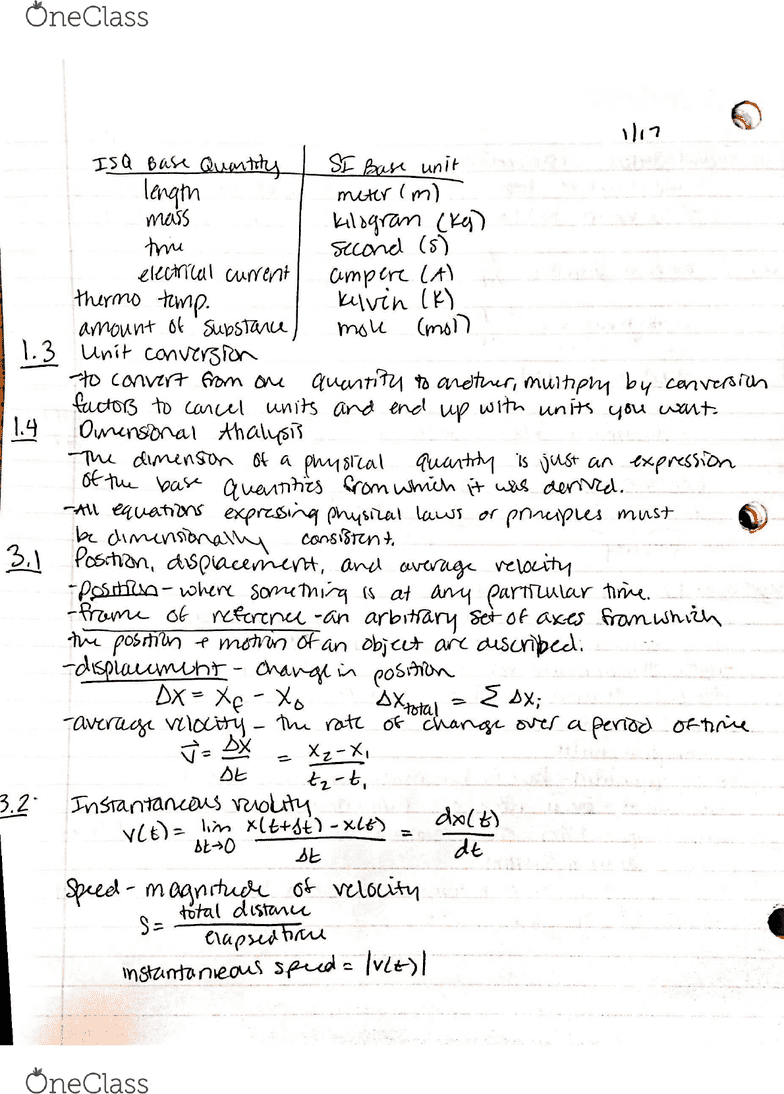 OneClass
1/17
ISQ Base Quantity | SI Base unit
length | meter (m)
mass | kilogram (kg)
time | second (s)
electrical current | ampere (A)
thermo temp. | kelvin (K)
amount of substance | mole (mol)
1.3 Unit conversion
-to convert from one quantity to another, multiply by conversion
factors to cancel units and end up with units you want.
1.4 Dimensional Analysis
-The dimension of a physical quantity is just an expression
of the base quantities from which it was derived.
-All equations expressing physical laws or principles must
be dimensionally consistent.
3.1 Position, displacement, and average velocity
-position - where something is at any particular time.
-frame of reference - an arbitrary set of axes from which
the position + motion of an object are described.
-displacement - change in position
Δx = xf - x0   Δxtotal = Σ Δxi
-average velocity - the rate of change over a period of time
v̄ = Δx/Δt = (x2-x1)/(t2-t1)
3.2 Instantaneous velocity
v(t) = lim Δt→0 (x(t+Δt) - x(t))/Δt = dx(t)/dt
Speed - magnitude of velocity
S = total distance/elapsed time
instantaneous speed = |v(t)|
OneClass